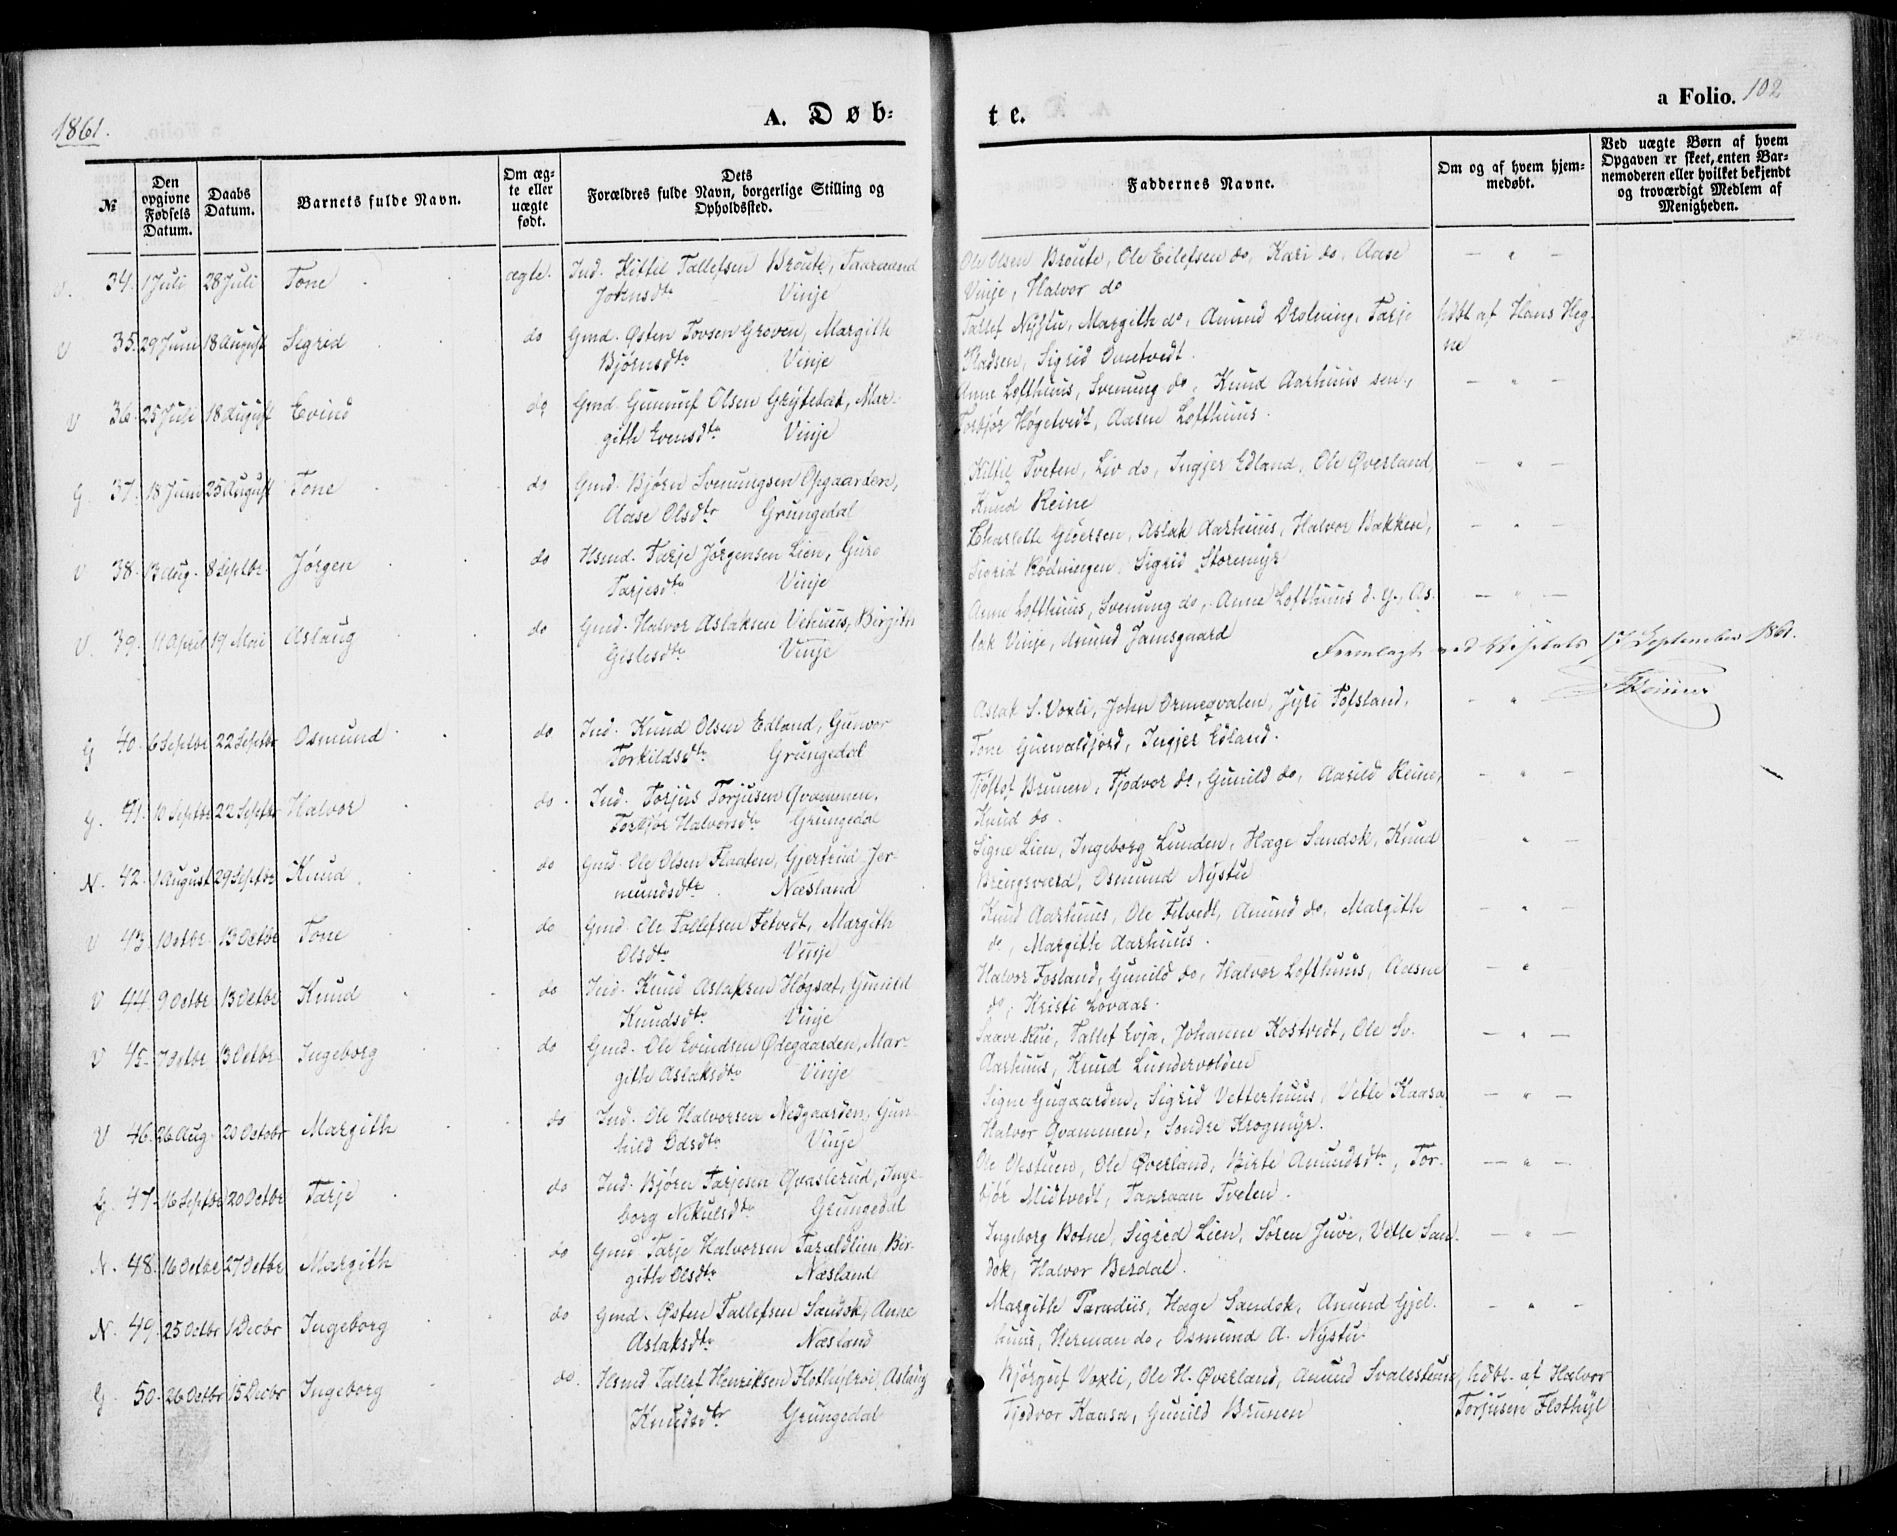 1861.
A. Døb-
te.
a Folio. 102
№
Den opgivne Fødsels Datum.
Daabs Datum.
Barnets fulde Navn.
Om ægte eller uægte født.
Dets Forældres fulde Navn, borgerlige Stilling og Opholdssted.
Faddernes Navne.
Om og af hvem hjemmedøbt.
Ved uægte Børn af hvem Opgaven er skeet, enten Barnemoderen eller hvilket bekjendt og troværdigt Medlem af Menigheden.
V. 34. 1 Juli 28 Juli Tone ægte. Ind. Kittil Tallefsen Broute, Taaraand
Jørensdtr Vinje
Ole Olsen Broute, Ole Eilefsen do, Kari do, Aase
Vinje, Halvor do
V 35. 29 Juni 18 August Sigrid do Gmd. Østen Tovsen Groven, Margith
Bjørnsdtr Vinje
Tallef Nystu, Margith do, Amund Drotning, Tarje hdbt af Hans Heg-
Pladsen, Sigrid Omtvedt. ne
V 36. 25 Juli 18 August Evind do Gmd. Gunnuf Olsen Grytebæk, Mar-
gith Evensdtr Vinje
Anne Lofthuus, Svenung do, Knud Aarhuus sen.,
Torbjør Høgetvedt, Aasne Lofthuus.
G 37. 18 Juni 25 August Tone do Gmd. Bjørn Svenungsen Opgaarden,
Aase Olsdtr Grungedal
Kittil Tveten, Liv do, Ingjer Edland, Ole Øverland,
Knud Reine
V 38. 13 Aug. 8 Septbr. Jørgen do Hsmd. Tarje Jørgensen Lien, Guro
Tarjesdtr Vinje
Charlotte Giversen, Aslak Aarhuus, Halvor Bakken,
Sigrid Rødningen, Sigrid Storemyr
V. 39. 11 April 19 Mai Aslaug do Gmd. Halvor Aslaksen Vehuus, Birgith
Gislesdtr Vinje
Anne Lofthuus, Svenung do, Anne Lofthuus d. y., As-
lak Vinje, Amund Jamsgaard
Fremlagt ved Visitats 17 September 1861.
G 40. 6 Septbr 22 Septbr Osmund do Ind. Knud Olsen Edland, Gunvor
Torkildsdtr Grungedal
Aslak S. Voxli, John Ormegvalen, Jyri Tofsland,
Tone Gunvaldjord, Ingjer Edland.
G. 41. 10 Septbr 22 Septbr Halvor do. Ind. Torjus Torjusen Qvammen,
Torbjør Halvorsdtr Grungedal
Tjøstof Brunen, Tjodvor do, Gunild do, Aasild Reine,
Knud do.
N. 42. 1 August 29 Septbr Knud do Gmd. Ole Olsen Flaaten, Gjertrud Jer-
mundsdtr Næsland
Signe Lien, Ingeborg Lunden, Hæge Sandok, Knud
Bringsværd, Osmund Nystu
V 43. 1 Octbr. 13 Octbr Tone do Gmd. Ole Tallefsen Fetvedt, Margith
Olsdtr Vinje
Knud Aarhuus, Ole Fetvedt, Amund do, Margith
do, Margith Aarhuus.
V 44. 9 Octbr. 13 Octbr Knud do Ind. Knud Aslaksen Høgsæt, Gunild
Knudsdtr Vinje
Halvor Fosland, Gunild do, Halvor Lofthuus, Aasne
do, Kristi Lovaas.
V 45. 7 Octbr 13 Octbr Ingeborg do Gmd. Ole Evindsen Ødegaarden, Mar-
gith Aslaksdtr Vinje
Saave Rui, Tallef Evja, Johanne Kostvedt, Ole Sv.
Aarhuus, Knud Lundevolden
V 46. 26 Aug. 20 Octobr Margith do Ind. Ole Halvorsen Nedgaarden, Gun-
hild Edsdtr Vinje
Signe Gugaarden, Sigrid Vetterhuus, Vetle Kaasa
Halvor Qvammen, Sondre Krogmyr.
G. 47. 16 Septbr 20 Octbr Tarje do Ind. Bjørn Tarjesen Qvaslerud, Inge-
borg Nikulsdtr Grungedal
Ole Vestuen, Ole Øverland, Birte Amundsdtr, Tor-
bjør Midtvedt, Taaraan Tveten.
N. 48. 16 Octbr 27 Octbr Margith do Gmd Tarje Halvorsen Taraldlien, Bir-
gith Olsdtr Næsland
Ingeborg Botne, Sigrid Lien, Søren Juve, Vetle San-
dok, Halvor Berdal.
N. 49. 25 Octbr 1 Decbr Ingeborg do Gmd. Østen Tallefsen Sandok, Anne
Aslaksdtr Næsland
Margith Paradiis, Hæge Sandok, Amund Gjel-
huus, Herman do, Osmund A. Nystu
G 50. 26 Octbr 15 Decbr Ingeborg do. Hsmd Tallef Henriksen Flothylrøi, Aslaug
Knudsdtr Grungedal
Bjørguf Voxli, Ole H. Øverland, Amund Svalestuen, hdbt. af Halvor
Tjodvor Kaasa, Gunild Brunen Torjusen Flothyl